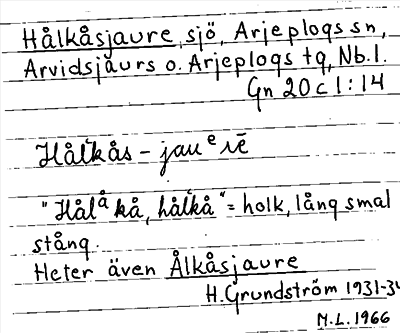 Hålkåsjaure, sjö, Arjeplogs sn,
Arvidsjaurs o. Arjeplogs tg, Nb.l.
Gn 20 c 1:14
Hålkås – jauᵉrē
"Hålåkå, hålkå" = holk, lång smal
stång.
Heter även Ålkåsjaure
H. Grundström 1931-34
M.L. 1966